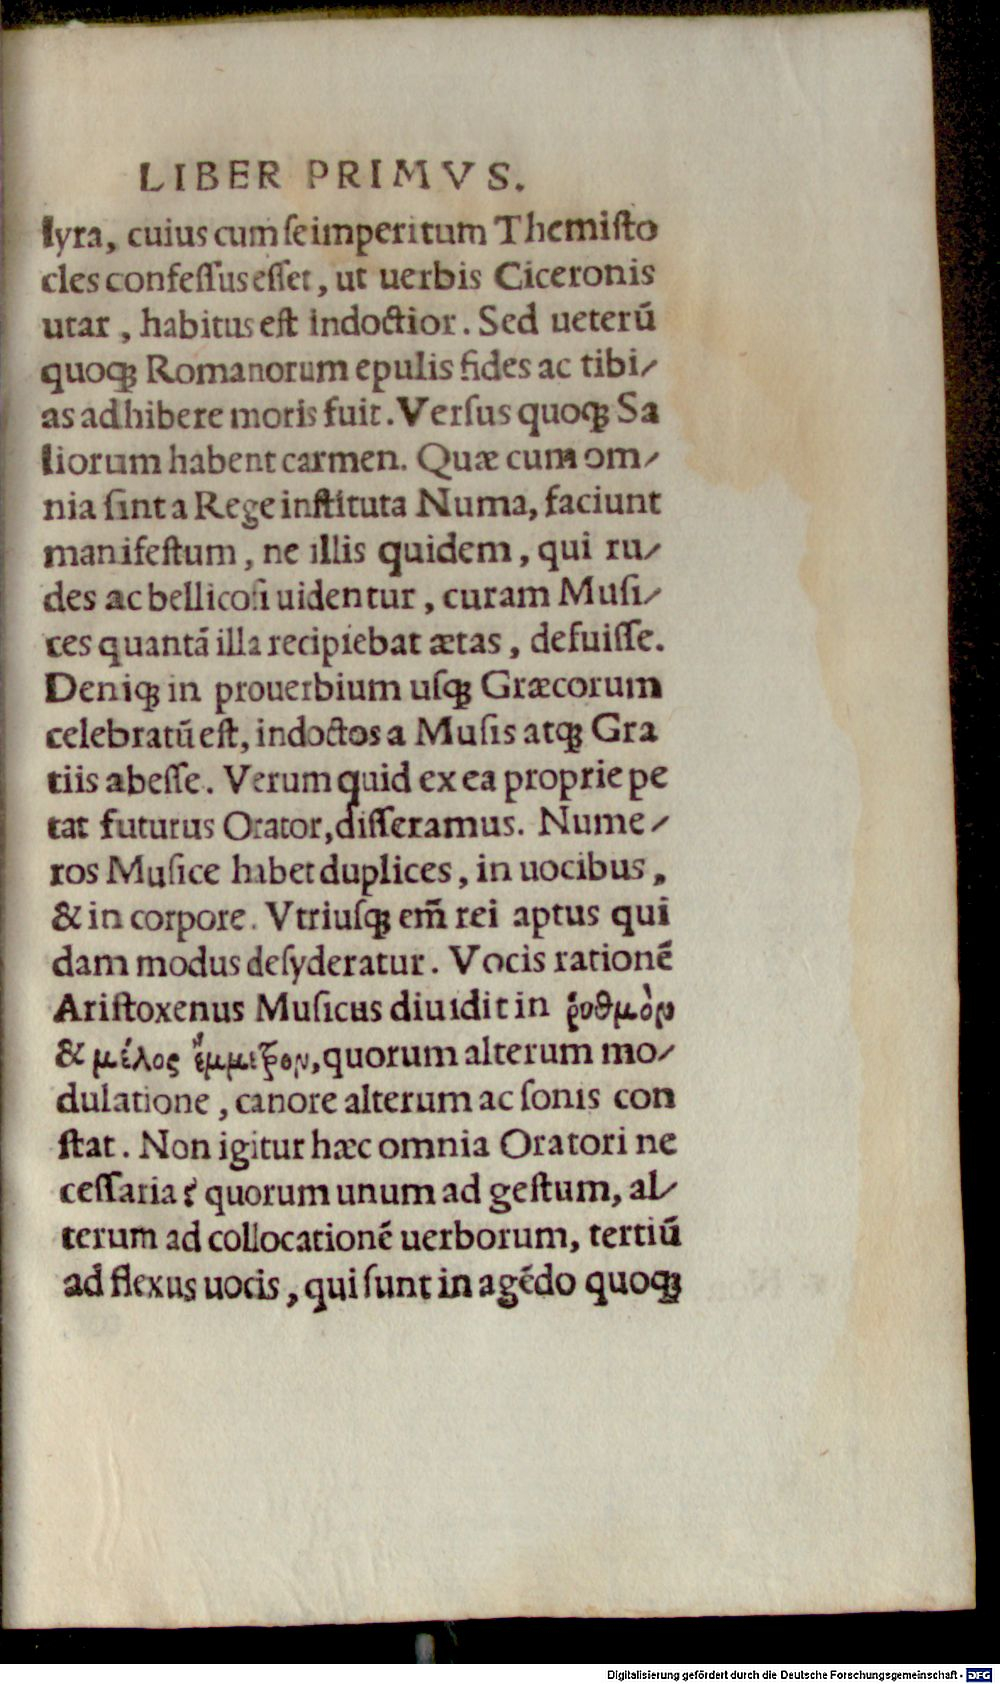 LIBER PRIMVS.
lyra, cuius cum ſe imperitum Themiſto
cles confeſſus eſſet, ut uerbis Ciceronis
utar, habitus eſt indoctior. Sed ueterū
quoqꝫ Romanorum epulis fides ac tibi⸗
as adhibere moris fuit. Verſus quoqꝫ Sa
liorum habent carmen. Quæ cum om⸗
nia ſint a Rege inſtituta Numa, faciunt
manifeſtum, ne illis quidem, qui ru⸗
des ac bellicoſi uidentur, curam Muſi⸗
ces quantā illa recipiebat ætas, defuiſſe.
Deniqꝫ in prouerbium uſqꝫ Græcorum
celebratū eſt, indoctos a Muſis atqꝫ Gra
tiis abeſſe. Verum quid ex ea proprie pe
tat futurus Orator, diſſeramus. Nume⸗
ros Muſice habet duplices, in uocibus,
& in corpore. Vtriuſqꝫ em̄ rei aptus qui
dam modus deſyderatur. Vocis rationē
Ariſtoxenus Muſicus diuidit in ῥυθμὸν
& μέλος ἔμμετρον, quorum alterum mo⸗
dulatione, canore alterum ac ſonis con
ſtat. Non igitur hæc omnia Oratori ne
ceſſaria? quorum unum ad geſtum, al⸗
terum ad collocationē uerborum, tertiū
ad flexus uocis, qui ſunt in agēdo quoqꝫ
Digitalisierung gefördert durch die Deutsche Forschungsgemeinschaft - DFG